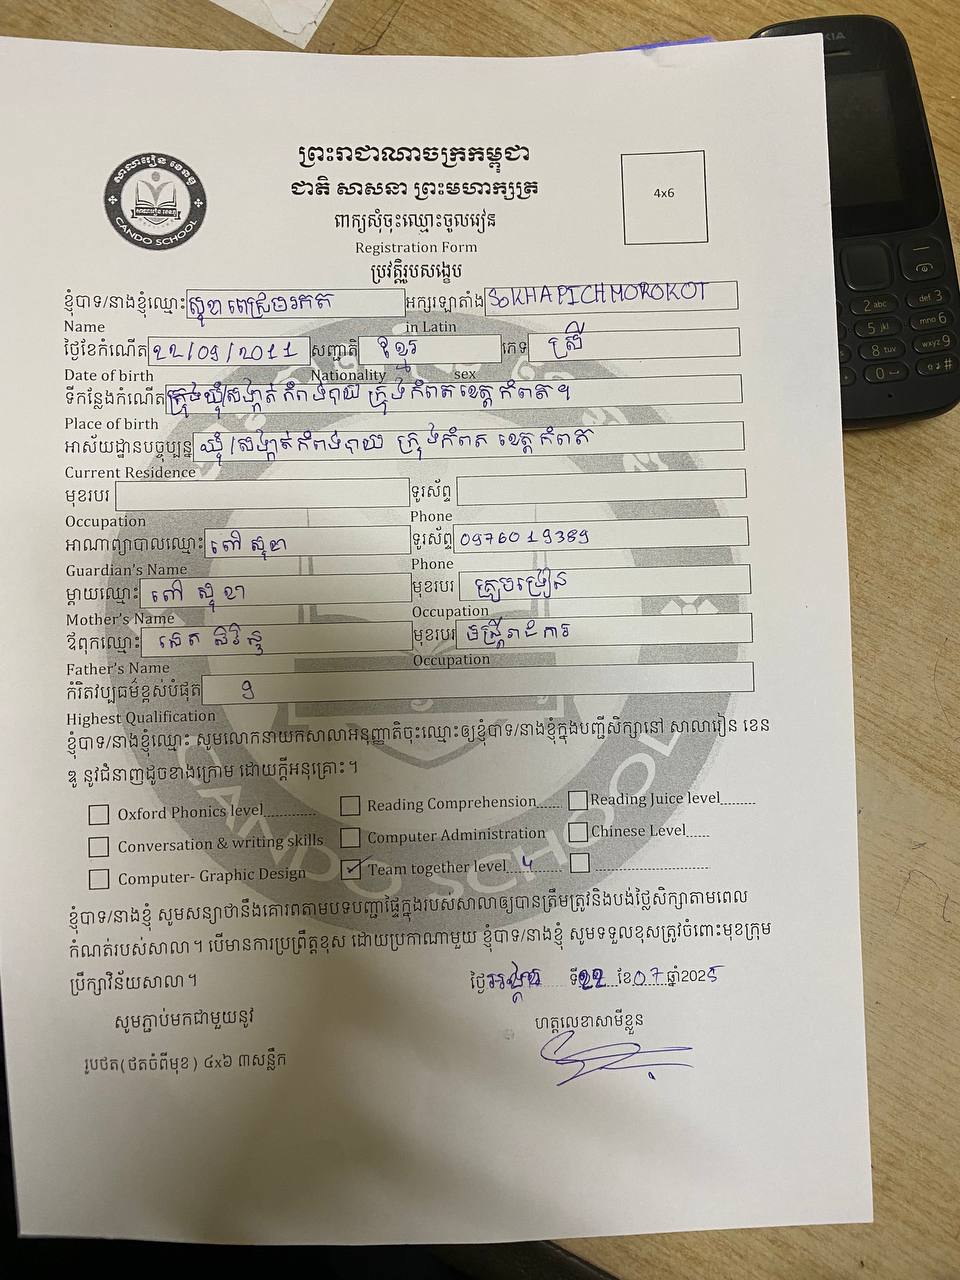 សាលារៀន ខេនឌូ
CANDO SCHOOL
ព្រះរាជាណាចក្រកម្ពុជា
ជាតិ សាសនា ព្រះមហាក្សត្រ
ពាក្យសុំចុះឈ្មោះចូលរៀន
Registration Form
ប្រវត្តិរូបសង្ខេប
4x6
NOKIA
ខ្ញុំបាទ/នាងខ្ញុំឈ្មោះ សុខា ពេជ្រមរកត អក្សរឡាតាំង SOKHA PICHMOROKOT
Name in Latin
ថ្ងៃខែកំណើត 22/09/2011 សញ្ជាតិ ខ្មែរ ភេទ ស្រី
Date of birth Nationality sex
ទីកន្លែងកំណើត ឃុំ/សង្កាត់ កំពង់បាយ ក្រុងកំពត ខេត្តកំពត ។
Place of birth
អាស័យដ្ឋានបច្ចុប្បន្ន ឃុំ/សង្កាត់កំពង់បាយ ក្រុងកំពត ខេត្តកំពត
Current Residence
មុខរបរ ទូរស័ព្ទ
Occupation Phone
អាណាព្យាបាលឈ្មោះ ពៅ សុខា ទូរស័ព្ទ 0976019389
Guardian's Name Phone
ម្ដាយឈ្មោះ ពៅ សុខា មុខរបរ គ្រូបង្រៀន
Mother's Name Occupation
ឪពុកឈ្មោះ មុខរបរ មន្ត្រីរាជការ
Father's Name Occupation
កំរិតវប្បធម៌ខ្ពស់បំផុត 9
Highest Qualification
ខ្ញុំបាទ/នាងខ្ញុំឈ្មោះ សូមលោកនាយកសាលាអនុញ្ញាតិចុះឈ្មោះឲ្យខ្ញុំបាទ/នាងខ្ញុំក្នុងបញ្ជីសិក្សានៅ សាលារៀន ខេន
ឌូ នូវជំនាញដូចខាងក្រោម ដោយក្ដីអនុគ្រោះ។
Oxford Phonics level............. Reading Comprehension...... Reading Juice level.........
Conversation & writing skills Computer Administration Chinese Level......
Computer- Graphic Design ✓ Team together level...4... .............................
ខ្ញុំបាទ/នាងខ្ញុំ សូមសន្យាថានឹងគោរពតាមបទបញ្ជាផ្ទៃក្នុងរបស់សាលាឲ្យបានត្រឹមត្រូវនិងបង់ថ្លៃសិក្សាតាមពេល
កំណត់របស់សាលា។ បើមានការប្រព្រឹត្តខុស ដោយប្រកាណាមួយ ខ្ញុំបាទ/នាងខ្ញុំ សូមទទួលខុសត្រូវចំពោះមុខក្រុម
ប្រឹក្សាវិន័យសាលា។
ថ្ងៃអង្គារ ទី22 ខែ07 ឆ្នាំ2025
សូមភ្ជាប់មកជាមួយនូវ ហត្ថលេខាសាមីខ្លួន
រូបថត(ថតចំពីមុខ) ៤x៦ ៣សន្លឹក